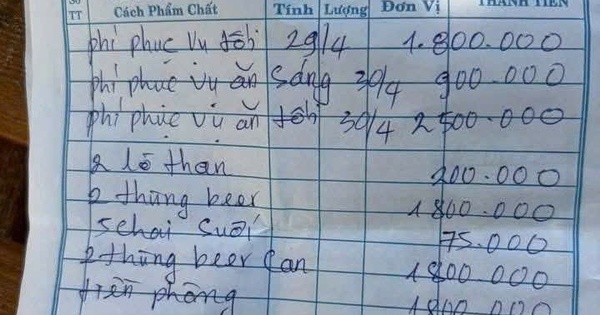 Số
TT Cách Phẩm Chất Tính Lượng Đơn Vị THÀNH TIỀN
phí phục vụ tối 29/4 1.800.000
phí phục vụ ăn sáng 30/4 900.000
phí phục vụ ăn tối 30/4 2500.000
2 lò than 200.000
2 thùng beer 1800.000
5chai suối 75.000
2 thùng beer Can 1800.000
tiền phòng 1800.000